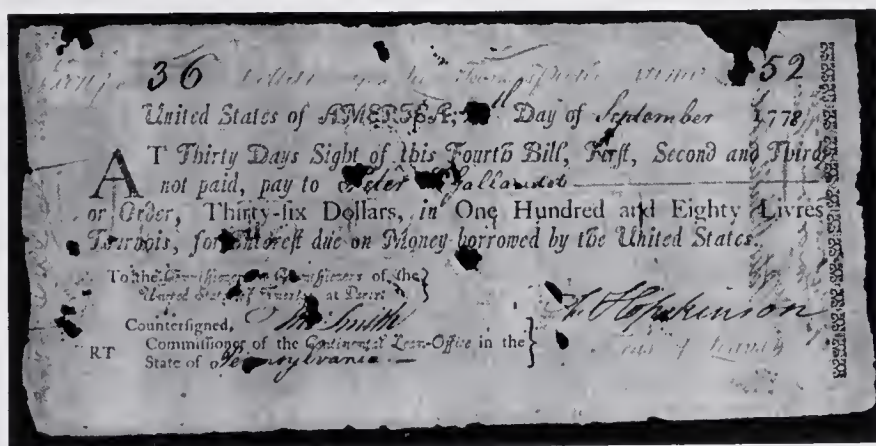 36 52
United States of AMERICA; th Day of September 1778
AT Thirty Days Sight of this Fourth Bill, First, Second and Third
not paid, pay to Peter Gallaudet
or Order, Thirty-six Dollars, in One Hundred and Eighty Livres
Tournois, for Interest due on Money borrowed by the United States.
To the Commissioner or Commissioners of the
United States of America at Paris
Countersigned, Tho Smith F. Hopkinson
Commissioner of the Continental Loan-Office in the Treas of Loans
RT State of Pennsylvania